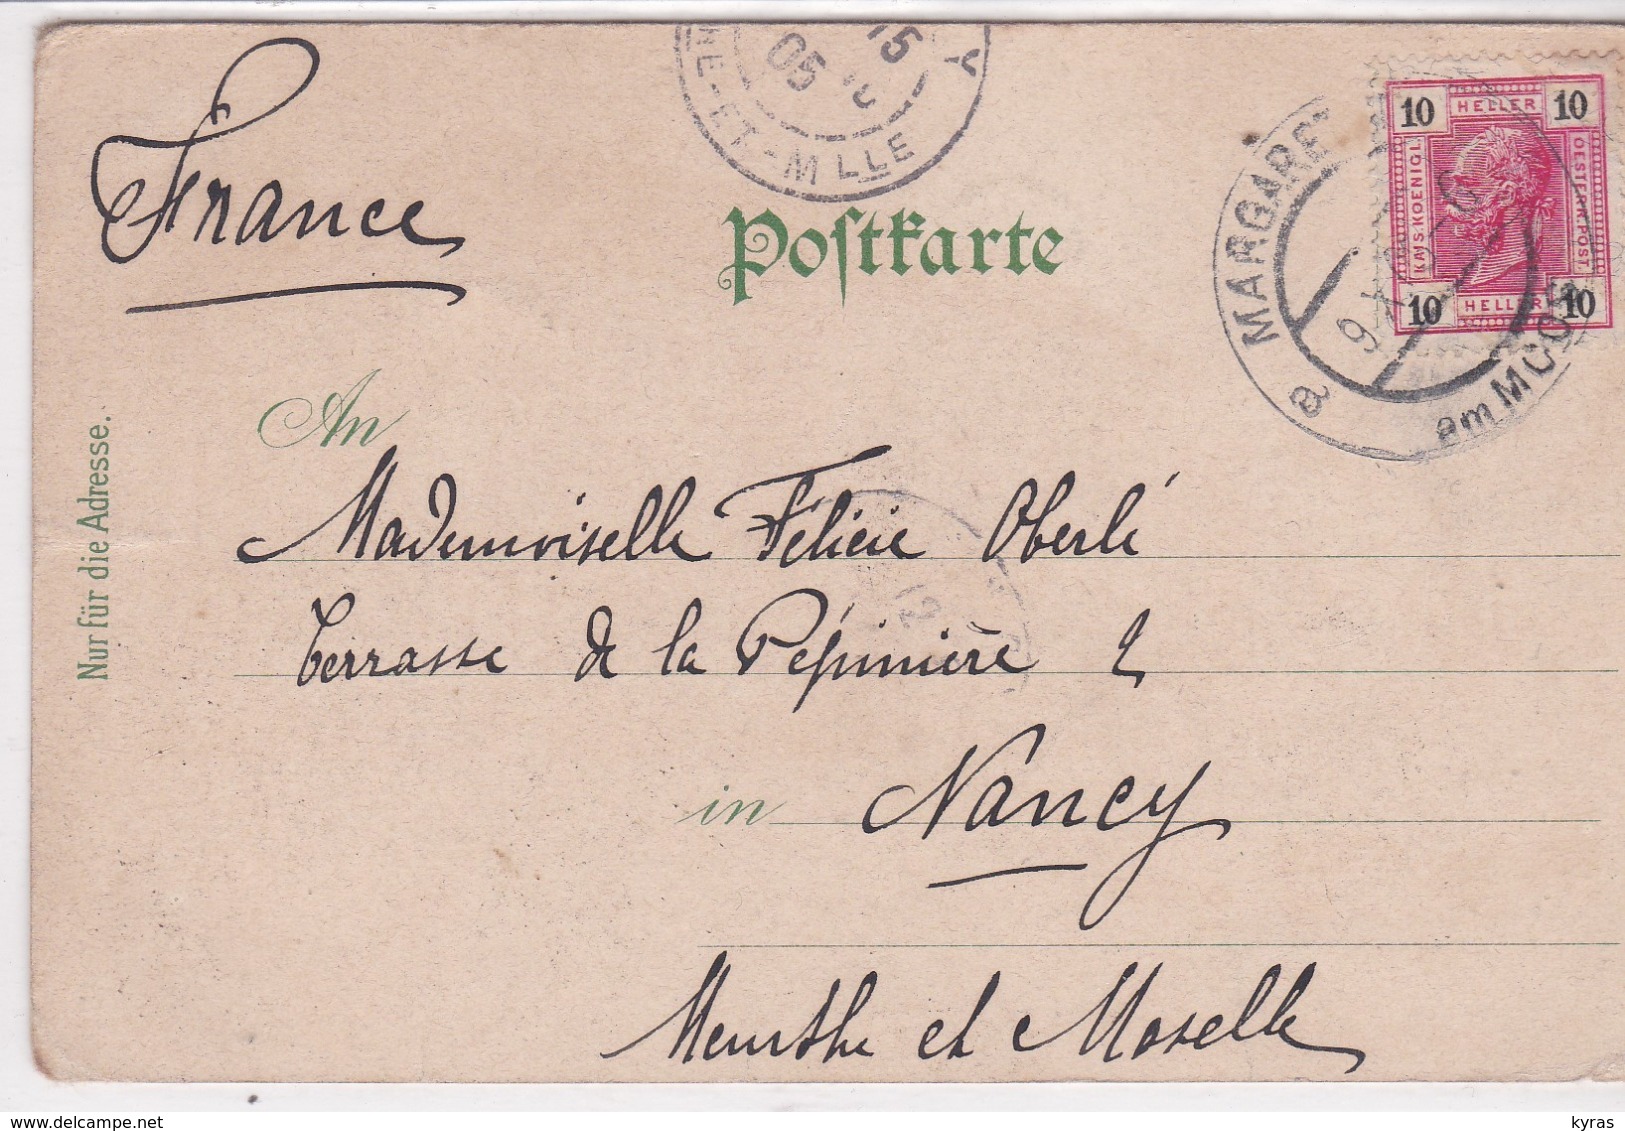 France
Postkarte
An
Mademoiselle Félicie Oberlé
Terrasse de la Pépinière 2
in Nancy
Meurthe et Moselle
Nur für die Adresse.
15
05
RE-ET-MLLE
Y
MARGARET
am MOOS
a
9 X
10 HELLER 10
KAIS. KOENIGL.
OESTERR. POST.
10 HELLER 10
12
delcampe.net
kyras